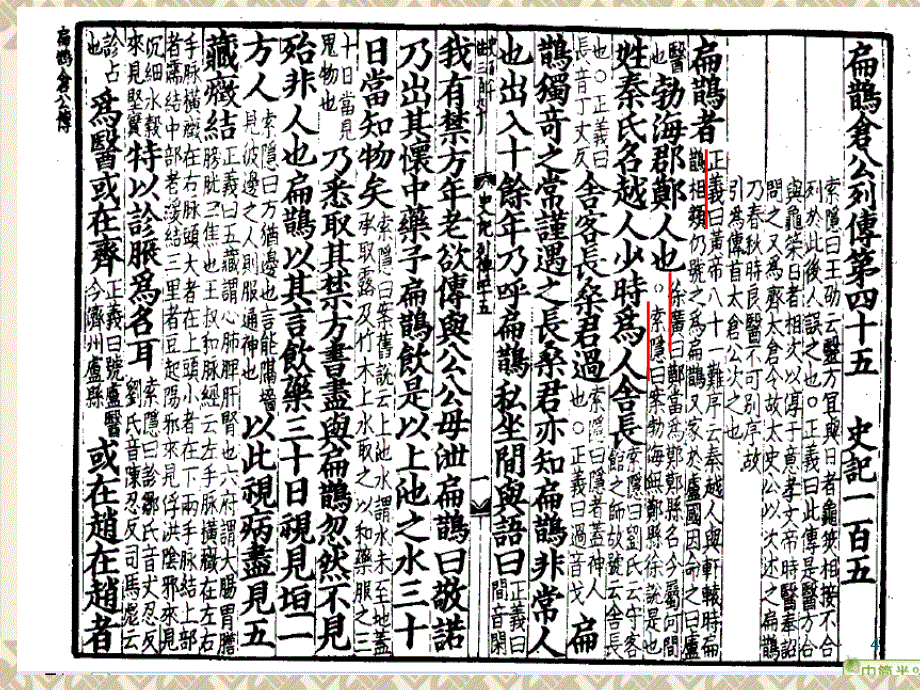 扁鵲倉公列傳第四十五　史記一百五
索隱曰王劭云醫方宜與日者龜筴相接不合
列於此後人誤之也○正義曰此傳是醫方合
與龜筴日者相次以淳于意孝文帝時醫奉詔
問之又為齊太倉令故太史公以次述之扁鵲
乃春秋時良醫不可別序故
引為傳首太倉公次之也
扁鵲者正義曰黃帝八十一難序云秦越人與軒轅時扁鵲相類仍號之為扁鵲又家於盧國因命之曰盧
醫也勃海郡鄭人也徐廣曰鄭當為鄚鄚縣名今屬河間○索隱曰案勃海無鄭縣徐說是也
姓秦氏名越人少時為人舍長索隱曰劉氏云守客館之師故號云舍長
也○正義曰長音丁丈反舍客長桑君過索隱曰隱者蓋神人也○正義曰過音戈扁
鵲獨奇之常謹遇之長桑君亦知扁鵲非常人
也出入十餘年乃呼扁鵲私坐間與語曰正義曰間音閑
史記列傳四十五
我有禁方年老欲傳與公公毋泄扁鵲曰敬諾
乃出其懷中藥予扁鵲飲是以上池之水三十
日當知物矣索隱曰案舊說云上池水謂水未至地蓋承取露及竹木上水取之以和藥服之三
十日當見鬼物也乃悉取其禁方書盡與扁鵲忽然不見
殆非人也扁鵲以其言飲藥三十日視見垣一
方人索隱曰方猶邊也言能隔墻見彼邊之人則眼通神也以此視病盡見五
藏癥結正義曰五藏謂心肺脾肝腎也六府謂大腸胃膽膀胱三焦也王叔和脉經云左手脉橫癥在左右
手脉橫癥在右脉頭大者在上頭小者在下兩手脉結上部者濡結中部者緩結三里者豆起陽邪來見浮洪陰邪來見
沉細水穀來見堅實特以診脈為名耳索隱曰診鄒氏音丈忍反劉氏音陳忍反司馬彪云
診占也為醫或在齊正義曰號盧醫今濟州盧縣或在趙在趙者
扁鵲倉公傳
4